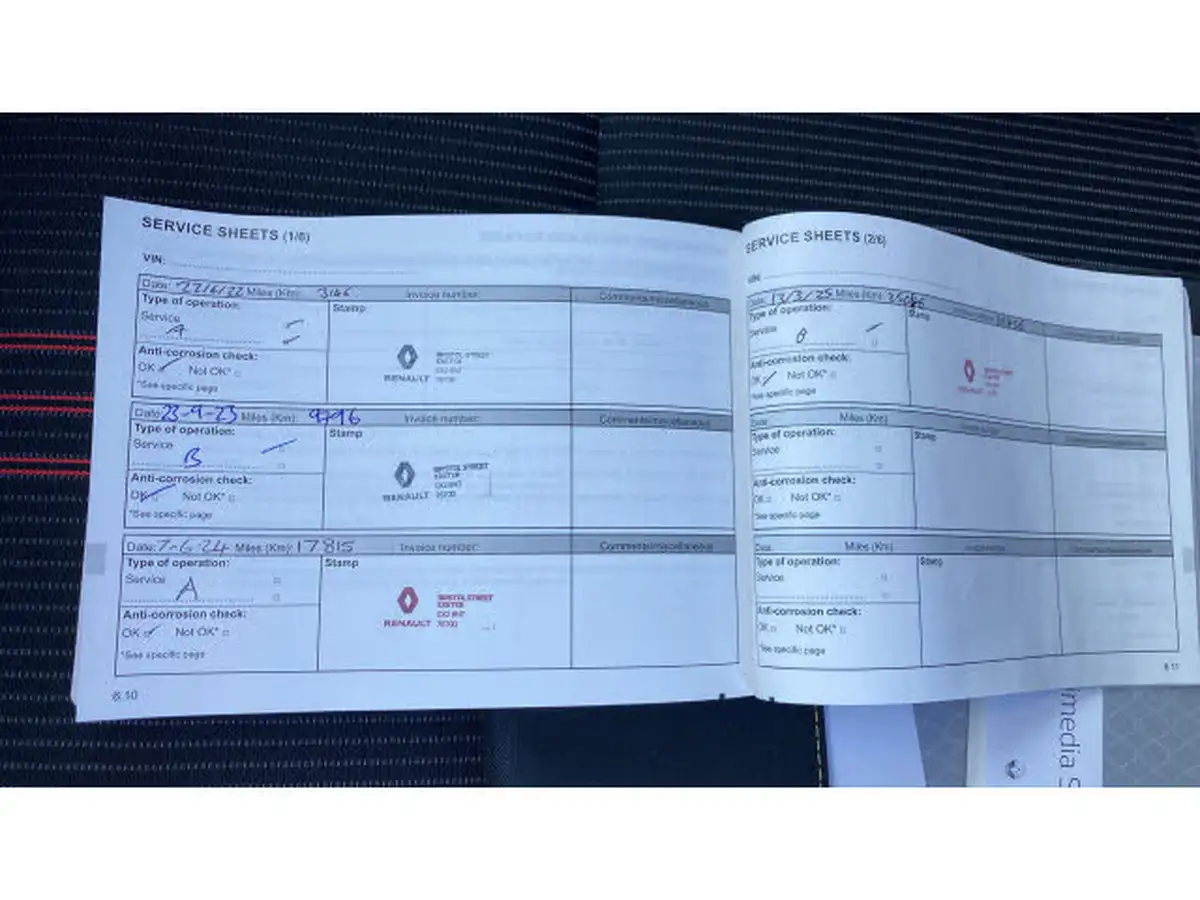 SERVICE SHEETS (1/6)
VIN:
Date: 22/6/22 Miles (Km): 3166 Invoice number: Comments/miscellaneous
Type of operation: Stamp
Service
A
Anti-corrosion check:
OK Not OK*
*See specific page
RENAULT BRISTOL STREET
EXETER
Date: 23-9-23 Miles (Km): 9796 Invoice number: Comments/miscellaneous
Type of operation: Stamp
Service
B
Anti-corrosion check:
OK Not OK*
*See specific page
RENAULT BRISTOL STREET
EXETER
Date: 7-6-24 Miles (Km): 17815 Invoice number: Comments/miscellaneous
Type of operation: Stamp
Service
A
Anti-corrosion check:
OK Not OK*
*See specific page
RENAULT BRISTOL STREET
EXETER
6.10
SERVICE SHEETS (2/6)
VIN:
Date: 13/3/25 Miles (Km):
Type of operation: Stamp
Service
B
Anti-corrosion check:
OK Not OK*
*See specific page
RENAULT
Date: Miles (Km)
Type of operation: Stamp
Service
Anti-corrosion check:
OK Not OK*
*See specific page
Date: Miles (Km)
Type of operation: Stamp
Service
Anti-corrosion check:
OK Not OK*
*See specific page
6.11
imedia S